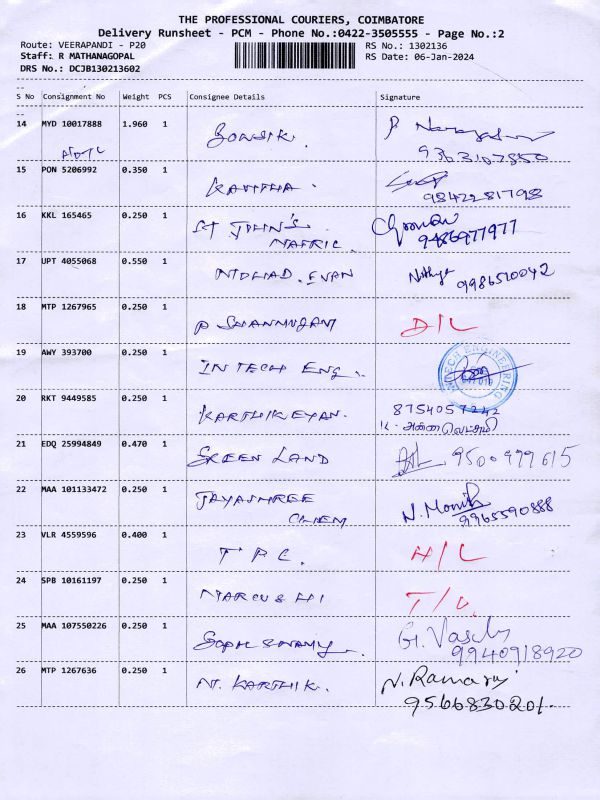 THE PROFESSIONAL COURIERS, COIMBATORE
Delivery Runsheet - PCM - Phone No.:0422-3505555 - Page No.:2
Route: VEERAPANDI - P20 RS No.: 1302136
Staff: R MATHANAGOPAL RS Date: 06-Jan-2024
DRS No.: DCJB130213602
S No Consignment No Weight PCS Consignee Details Signature
14 MYD 10017888 1.960 1
9363107850
15 PON 5206992 0.350 1 KAVITHA.
9842281798
16 KKL 165465 0.250 1 ST JOHN'S
MATRIC. 9486977977
17 UPT 4055068 0.550 1 Nithya
9986510042
18 MTP 1267965 0.250 1 P SHANMUGAM D/L
19 AWY 393700 0.250 1 INTECH ENG. INTECH ENGINEERING
20 RKT 9449585 0.250 1 KARTHIKEYAN. 8754057242
21 EDQ 25994849 0.470 1 GREEN LAND 9500977615
22 MAA 101133472 0.250 1 JAYASHREE
CHEM 9965590888
23 VLR 4559596 0.400 1 T P C. H/L
24 SPB 10161197 0.250 1
25 MAA 107550226 0.250 1 9940918920
26 MTP 1267636 0.250 1 N. KARTHIK. N. Ramaraj
9566830201.